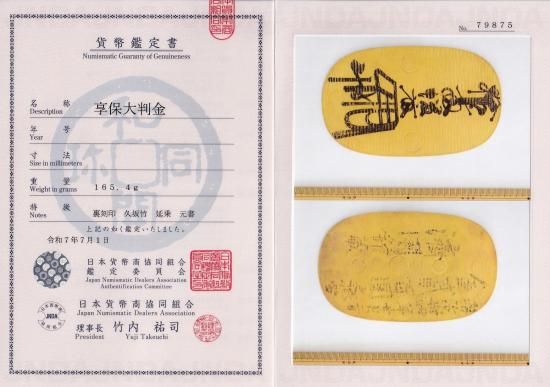 貨幣鑑定書
Numismatic Guaranty of Genuineness
名称
Description
享保大判金
年号
Year
寸法
Size in millimeters
重量
Weight in grams
165.4g
特徴
Notes
裏刻印 久坂竹 延乗 元書
上記の如く鑑定いたしました。
令和7年7月1日
日本貨幣商協同組合
鑑定委員会
Japan Numismatic Dealers Association
Authentification Committee
JNDA
日本貨幣商協同組合
Japan Numismatic Dealers Association
理事長 竹内 祐司
President Yuji Takeuchi
No. 79875